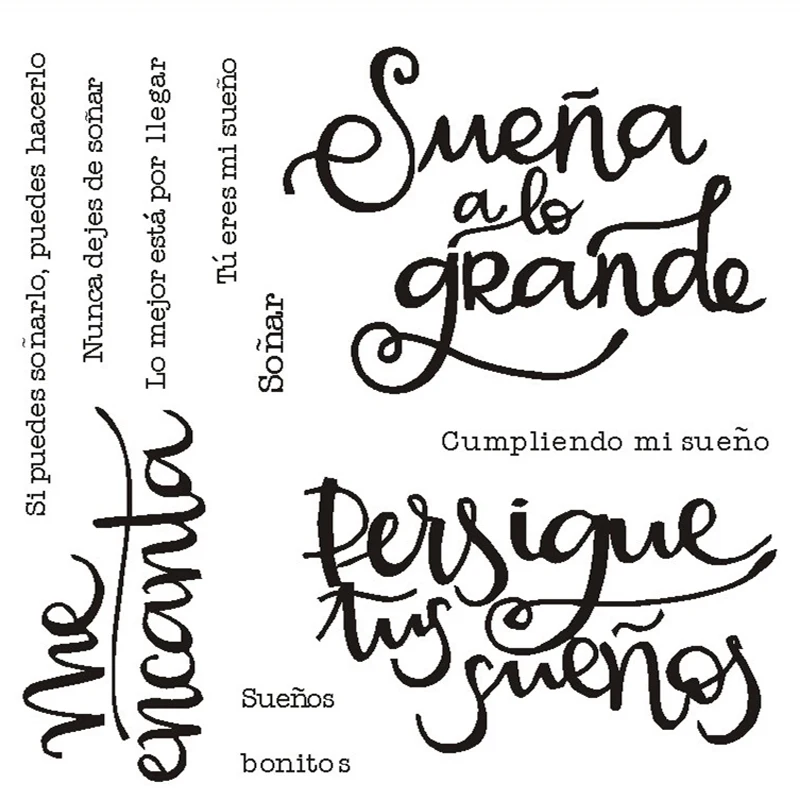 Si puedes soñarlo, puedes hacerlo
Nunca dejes de soñar
Lo mejor está por llegar
Tú eres mi sueño
Soñar
Sueña
a lo
grande
Cumpliendo mi sueño
me
encanta
Persigue
tus
sueños
Sueños
bonitos